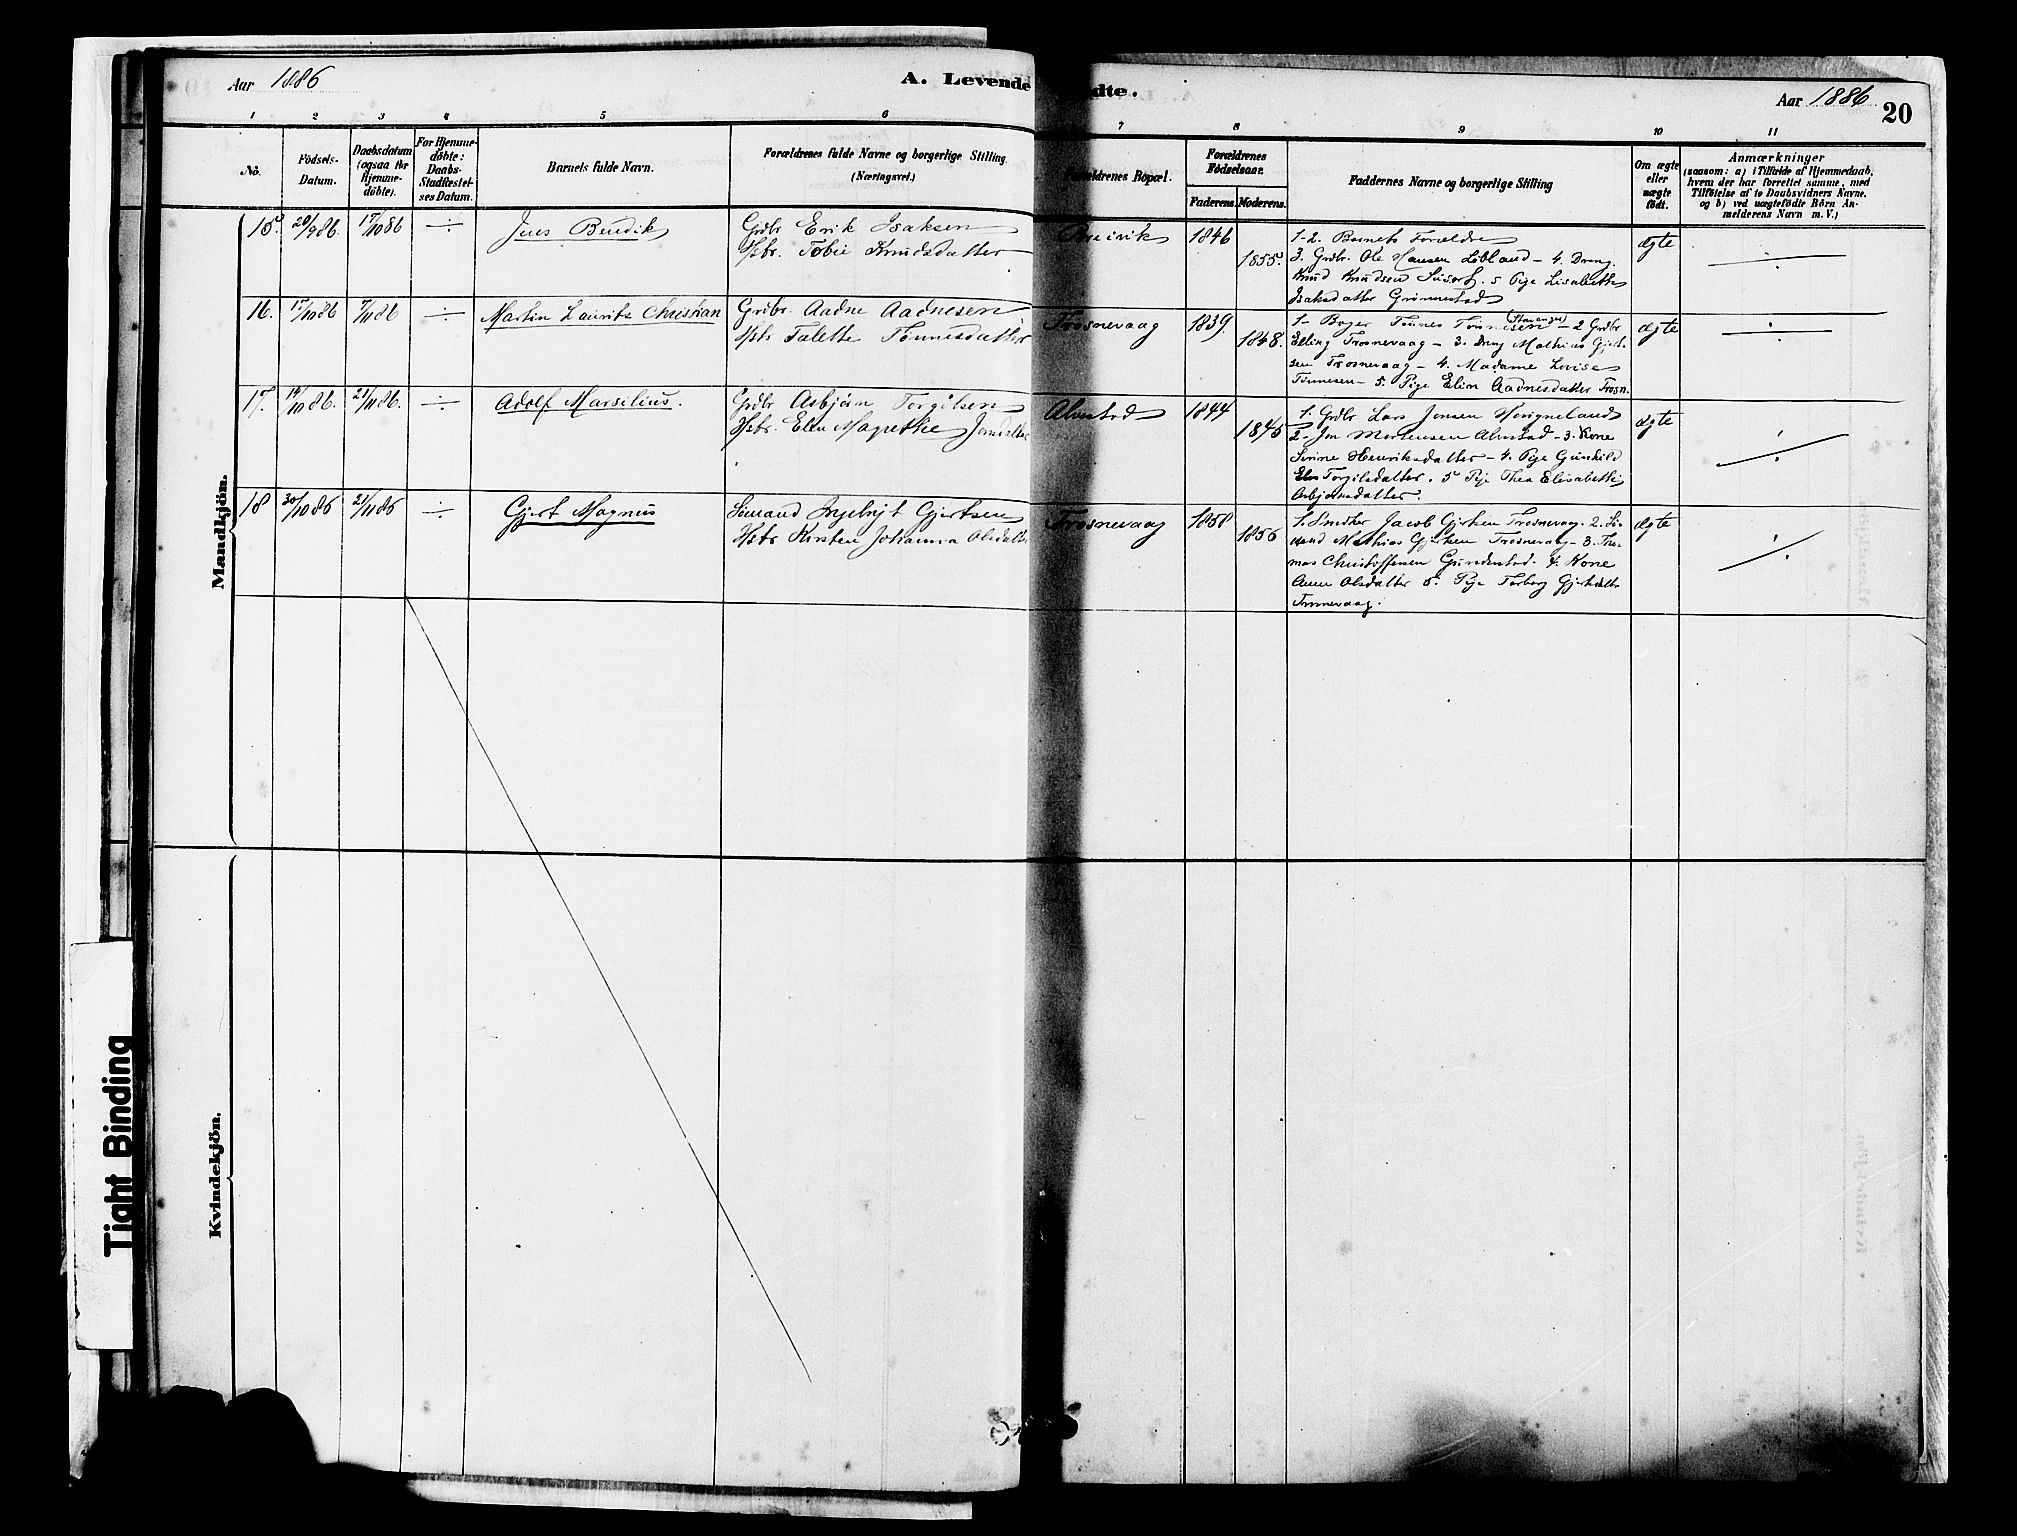 Aar 1886
A. Levende
dte.
Aar 1886
20
1 2 3 4 5 6 7 8 9 10 11
No.
Fødsels-
Datum.
Daabsdatum
(ogsaa for
Hjemme-
døbte).
For Hjemme-
døbte:
Daabs-
Stadfæstel-
ses Datum.
Barnets fulde Navn.
Forældrenes fulde Navne og borgerlige Stilling.
(Næringsvei.)
Forældrenes Bopæl.
Forældrenes
Fødselsaar.
Faderens. Moderens.
Faddernes Navne og borgerlige Stilling
Om ægte
eller
uægte
født.
Anmærkninger
(saasom: a) i Tilfælde af Hjemmedaab,
hvem der har forrettet samme, med
Tilføielse af to Daabsvidners Navne,
og b) ved uægtefødte Børn An-
melderens Navn m. V.)
Mandkjön.
15. 29/9 86. 17/10 86 ÷ Jens Bendik
Grdbr. Erik Isaksen
Hstr. Tobie Knudsdatter
1846
1855.
1-2. Barnets Forældre
3. Grdbr. Ole Hansen Løland - 4. Dreng
Knud Knudsen - 5 Pige Lisabeth
Isaksdatter Grønnestad
ægte
÷
16. 17/10 86 7/11 86 ÷ Martin Lauritz Christian
Grdbr. Aadne Aadnesen
Hstr. Talette Tønnesdatter
Trosnevaag 1839
1848.
1- Tønnes Tønnesen (Stavanger) - 2 Grdbr
Elling Trosnevaag - 3. Dreng Mathias Gjert-
sen Trosnevaag - 4. Madame Lovise
Tønnesen - 5. Pige Elen Aadnesdatter Trosn.
ægte
÷
17. 14/10 86. 21/11 86. ÷ Adolf Marsilius.
Grdbr Asbjørn Torgilsen
Hstr. Elen Magrethe Jonsdatter
Alvestad 1844
1845
1. Grdbr Lars Jonsen
2. Jon Mortensen Alvestad - 3. Kone
Serine Henriksdatter - 4. Pige Gunhild
Elen Torgilsdatter. 5 Pige Thea Elisabeth
Asbjørnsdatter.
ægte
÷
18 30/10 86 21/11 86 ÷ Gjert Magnus
Sømand Ingebrigt Gjertsen
Hstr Kirsten Johanna Olsdatter
Trosnevaag 1858
1856
1. Snedker Jacob Gjertsen Trosnevaag. 2. Sø-
mand Mathias Gjertsen Trosnevaag - 3. Tho-
mas Christoffersen Gundestad. 4. Kone
Anne Olsdatter 5. Pige Torborg Gjertsdatter
Trosnevaag.
ægte
÷
Kvindekjön.
Tight Binding